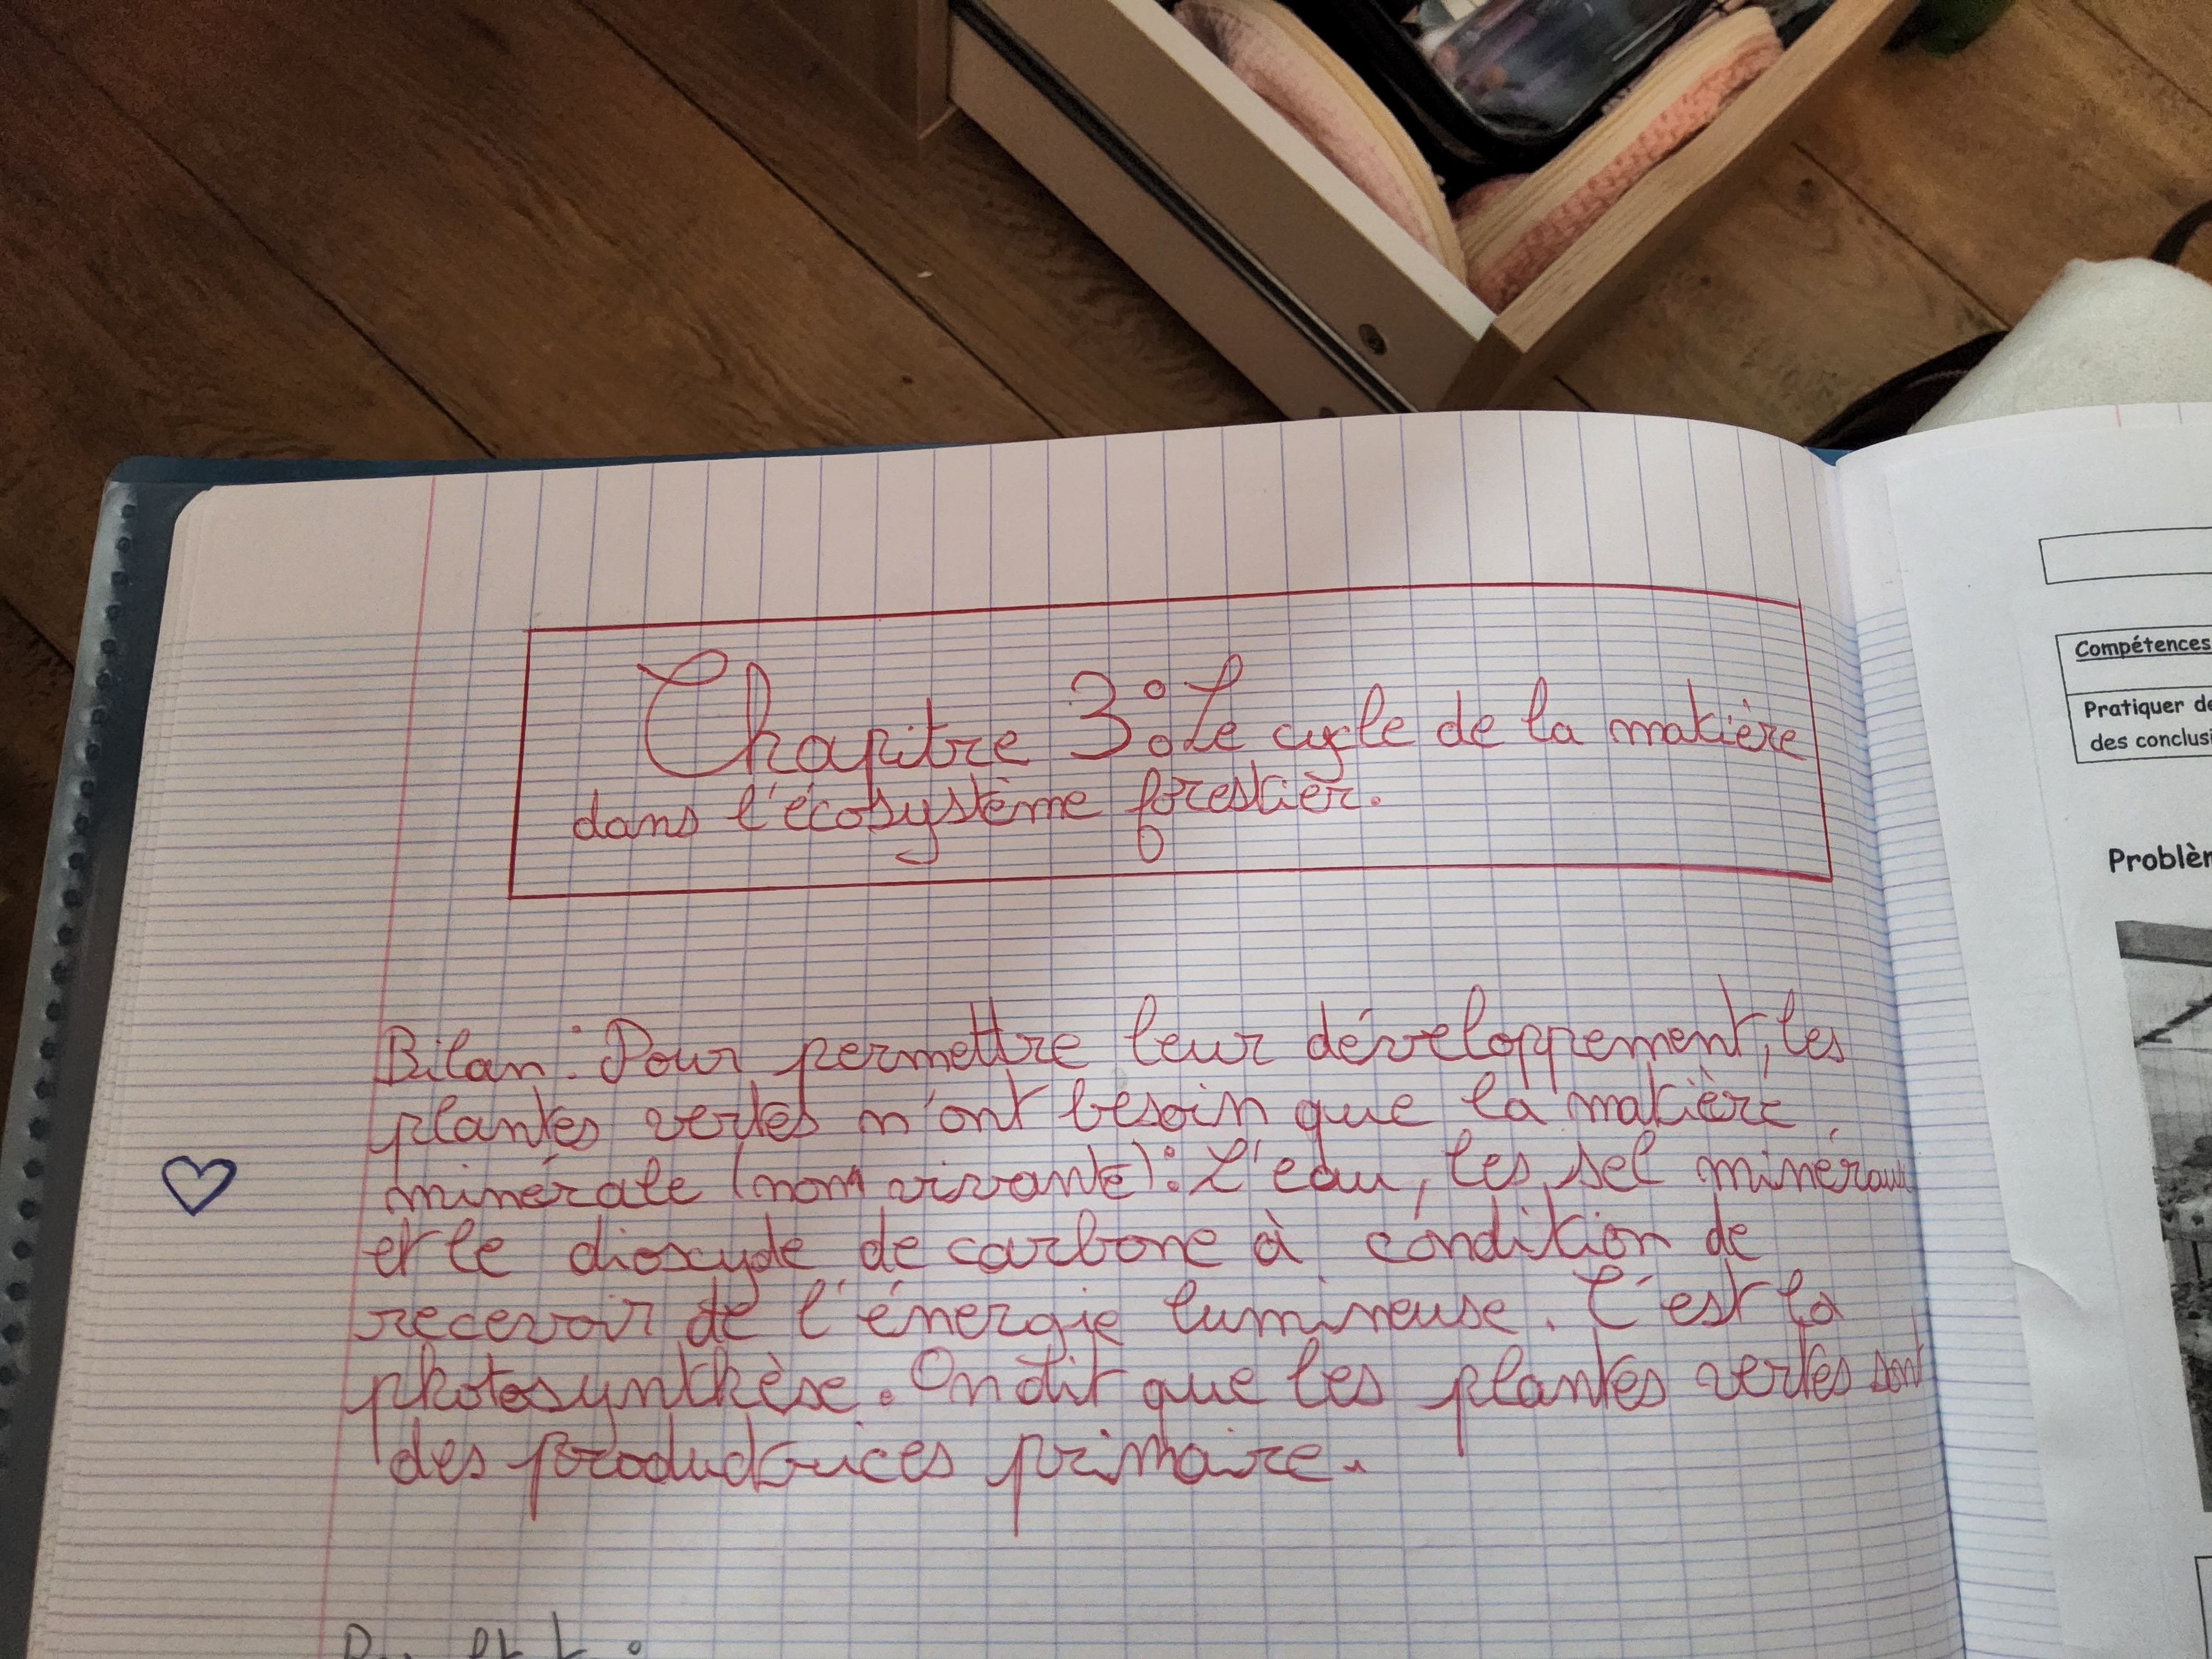 Chapitre 3 : Le cycle de la matière
dans l'écosystème forestier.
Bilan : Pour permettre leur développement, les
plantes vertes n'ont besoin que la matière
minérale (non vivante) : L'eau, les sel minéraux
et le dioxyde de carbone à condition de
recevoir de l'énergie lumineuse. C'est la
photosynthèse. On dit que les plantes vertes sont
des productrices primaire.
Compétences
Pratiquer
des